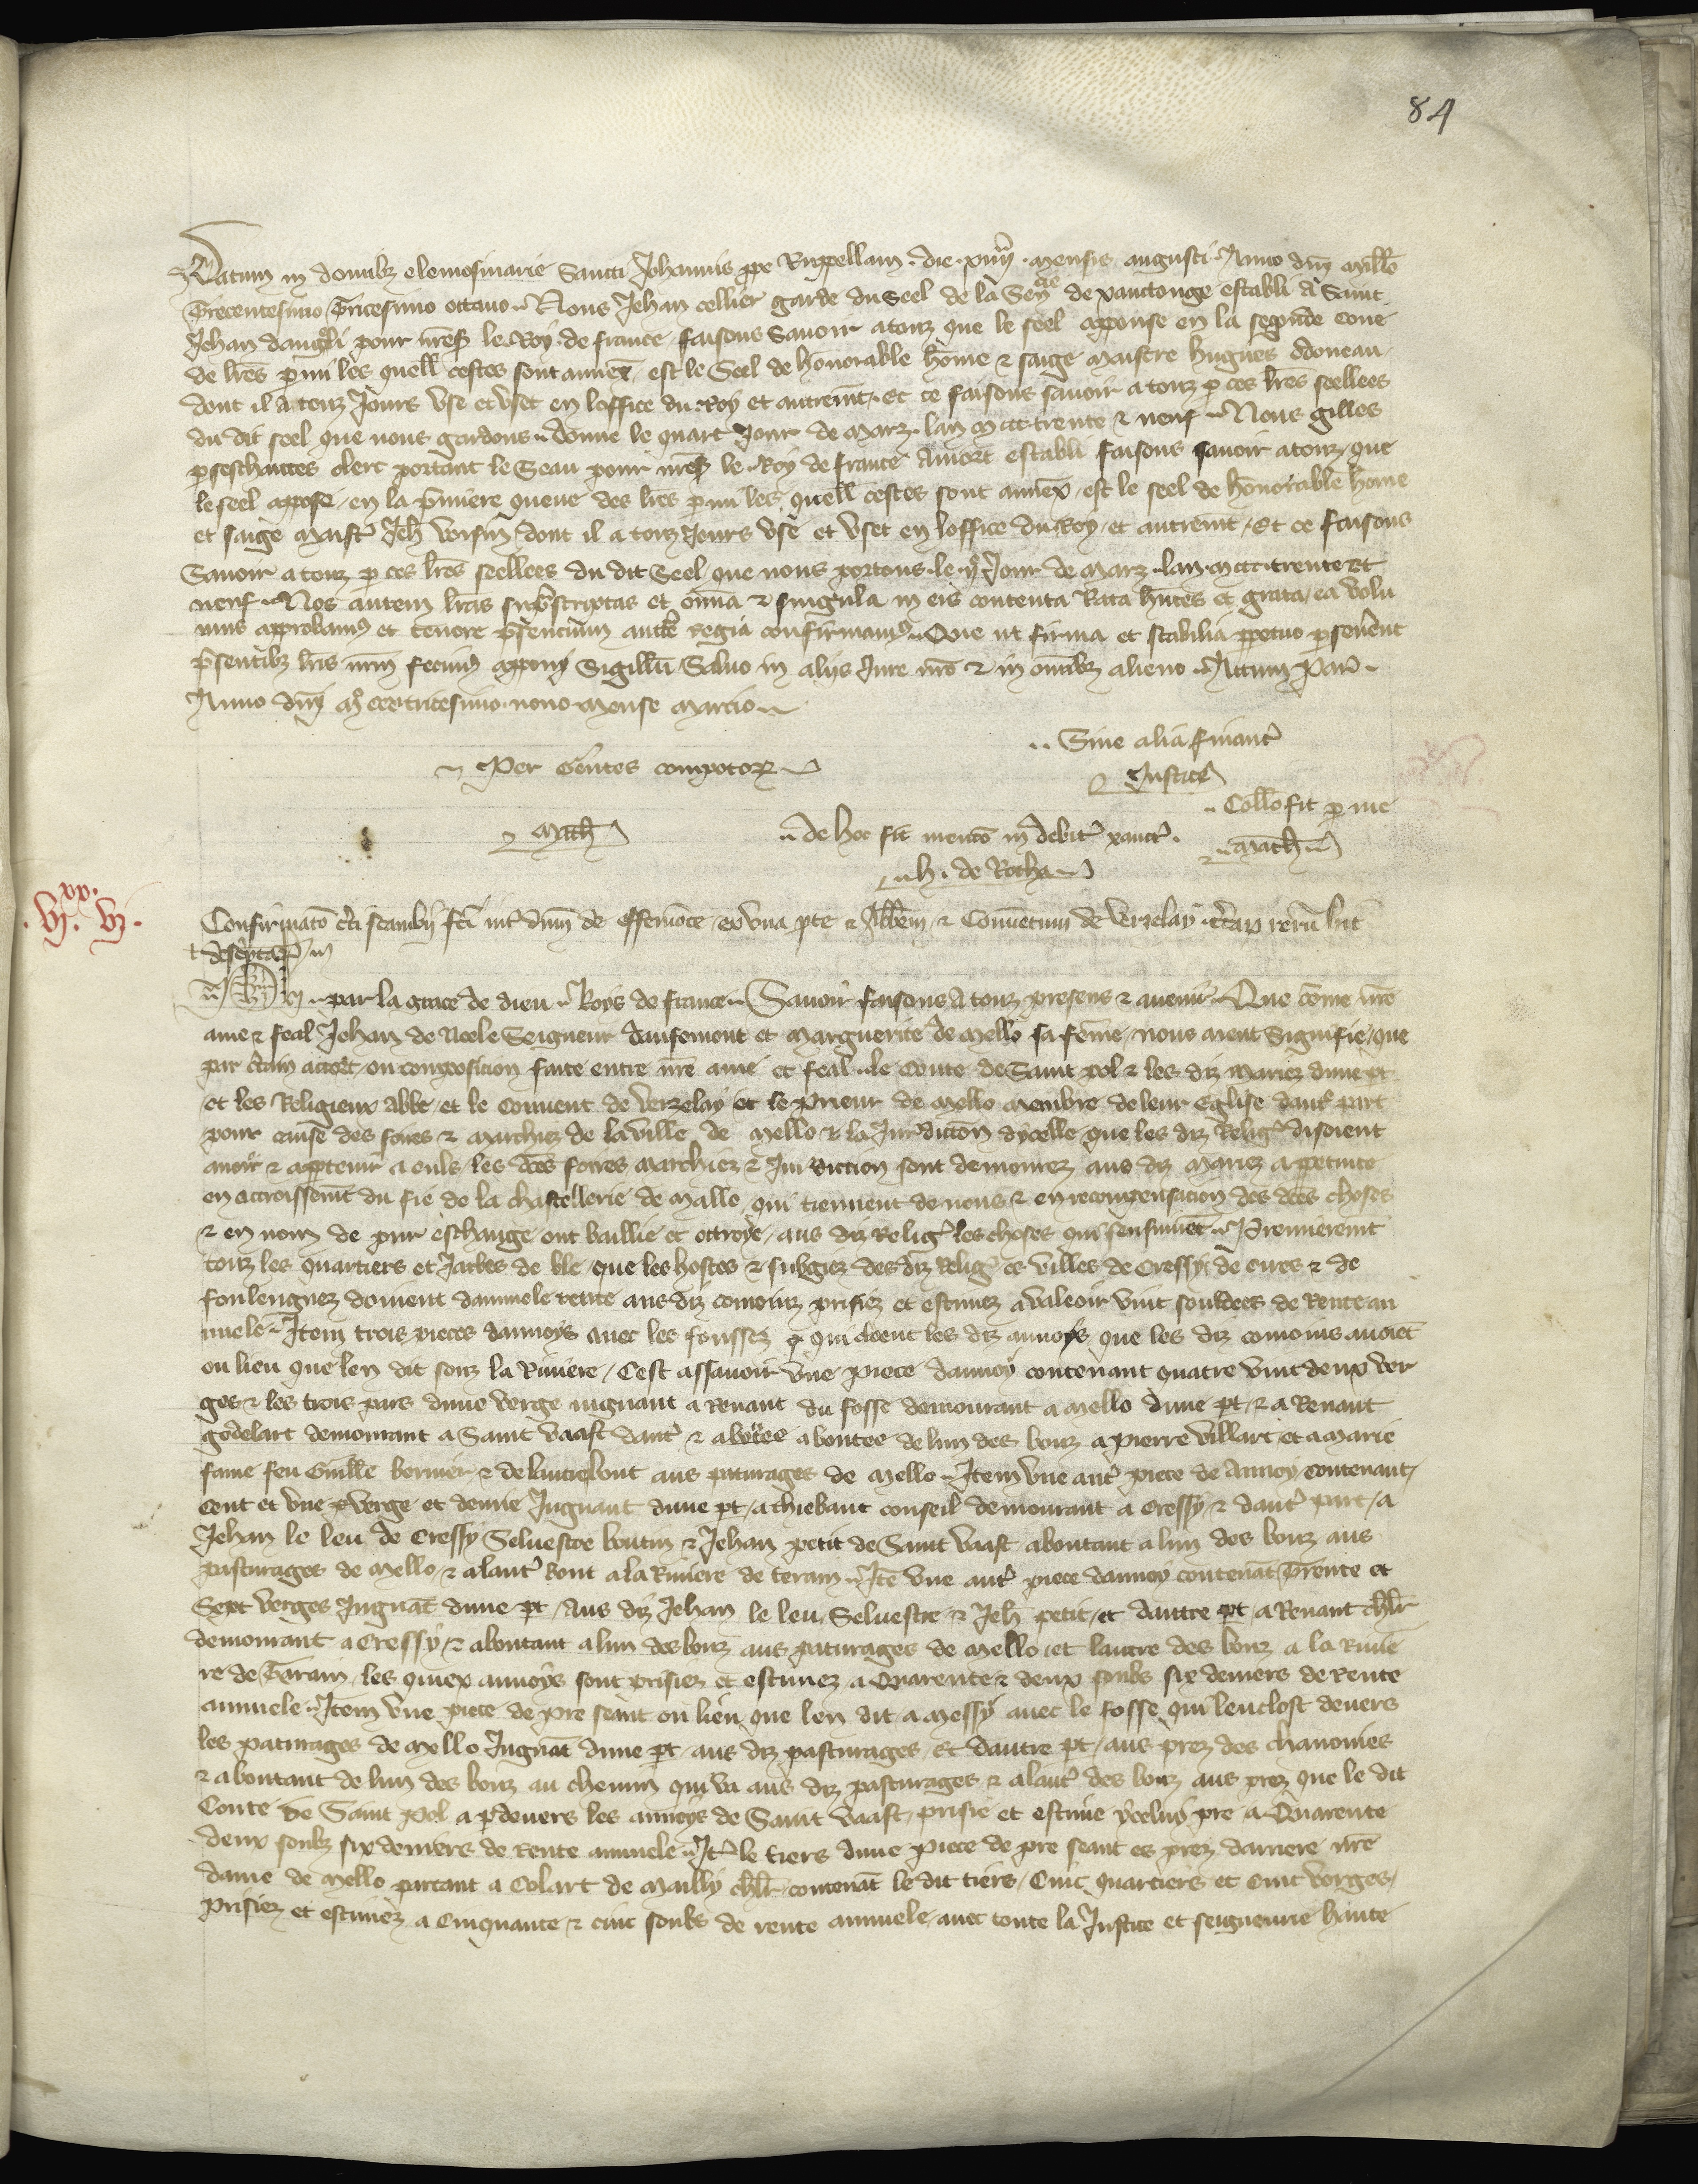 84
Datum in domibz elemosinarie Sancti Johannis ppe Ruppellam . die . xiiij . mensis augusti . Anno dnj millo
Trecentesimo Tricesimo octauo . Nous Jehan cellier garde du seel de la Senele de xanctonge establi a Saint
Jehan dangli pour nres le Roy de france faisons sauoir a touz que le seel appouse en la segunde coue
de lres pmi les quell cestes sont annex est le Seel de honorable home & saige maistre hugues odoneau
dont il a touz Jours vse et vset en loffice du Roy et autremt . Et ce faisons sauoir a touz p ces lres seellees
du dit seel que nous gardons . donne le quart Jour de marz . lan m ccc trente & neuf . Nous gilles
clerc portant le Seau pour nres le Roy de france Aniort establi faisons sauoir a touz que
le seel appose en la pmiere queue des lres pmi les quell cestes sont annex est le seel de honorable home
et saige maistr Jeh voisin dont il a touz Jours vse et vset en loffice du Roy et autremt . Et ce faisons
Sauoir a touz p ces lres seellees du dit Seel que nous portons le Jour de marz . lan m ccc trente et
neuf . Nos autem lras suprscriptas et omia & singula in eis contenta Rata hntes et grata ea volu
mus approbamus et tenore presencium aucte regia confirmamus . Que ut firma et stabilia ppetuo pseuerent
presentibz lris nrm fecimus apponj Sigillu Saluo in alijs Jure nro & in omibz alieno . Actum Par .
Anno dnj mo ccc tricesimo nono mense marcio
Sine alia financ
Per Gentes compotor
Justice
Collo fit p me
Math
de hoc fit mencio in debit xanct .
Math
h . de Rocha
xx
. vj . vj .
Confirmaco cti scambij fci int dnm de Offemonte ex vna pte & Abbem & Conuentum de verzelay ctar reru hic
descptar in
Ph par la grace de dieu Roys de france . Sauoir faisons a touz presens & auenir . Que come nre
ame & feal Jehan de Neele Seigneur daufemont et Marguerite de Mello sa feme nous aient Signifie que
par ctain accort ou composicion faite entre nre ame et feal le Conte de Saint pol & les diz mariez dune pt
et les Religieux abbe et le conuent de verzelay et le Prieur de mello menbre de leur Eglise daut part
pour cause des foires & marchiez de la ville de mello & la Jurdiction dycelle que les diz Relig disoient
auoir & apptenir a euls les dces foires marchiez & Juridiction sont demourez aus diz mariez a ppetuite
en accroissemt du fie de la chastellerie de mallo qui tiennent de nous & en recompensacion des dces choses
& en nom de pur eschange ont baillie et ottroye aus diz Relig les choses qui sensuiuet . Premieremt
touz les quartiers et Jarbes de ble que les hostes & subgiez des diz Relig es villes de Cressy de cires & de
foulenguez doiuent dannuele rente aus diz conioinz prisiez et estimez a valeoir vint souldees de Rente an
nuele . Item trois pieces dannoys auec les foussez qui cloent les diz annoys que les diz conioins auoiet
ou lieu que len dit souz la Riuiere / Cest assauoir vne piece dannoy contenant quatre vint deux ver
ges & les trois pars dune verge iugnant a Renaut du fosse demourant a mello dune pt & a Renaut
godelart demourant a Saint vaast daut & aboutee de lun des bouz a pierre villart et a marie
fame feu Guille bernier & de lautre bout aus paturages de mello . Item vne aut piece de Annoy contenant
Cent et vne verge et demie Jugnant dune pt a thiebaut conseil demourant a Cressy & daut part a
Jehan le leu de Cressy Seluestre boutin & Jehan petit de Saint vaast aboutant a lun des bouz aus
pasturages de mello & a laut bout a la Riuiere de terain . Ite vne aut piece dannoy contenat Trente et
Sept verges Jugnat dune pt Aus diz Jehan le leu Seluestre & Jeh petit et dautre pt a Renaut chlr
demourant a Cressy & aboutant a lun des bouz aus paturages de mello et lautre des bouz a la Riuie
re de Tarain les quiex annoys sont prisiez et estimez a Quarente & deux soubs six deniers de Rente
annuele . Item vne piece de pre seant ou lieu que len dit a messy auec le fosse qui lenclost deuers
les paturages de mello Jugnat dune pt aus diz pasturages Et dautre pt aus prez des chanoines
& aboutant de lun des bouz au chemin qui va aus diz pasturages & a laut des bouz aus prez que le dit
Conte de Saint Pol a pdeuers les annoys de Saint vaast prisie et estime yceluy pre a Quarente
deux soubz six deniers de Rente annuele . It le tiers dune piece de pre seant es prez darriere nre
dame de mello partant a Colart de mailly chlr contenat le dit tiers Cinc quartiers et Cinc verges
Prisiez et estimez a Cinquante & cinc soubs de rente annuele auec toute la Justice et seigneurie haute